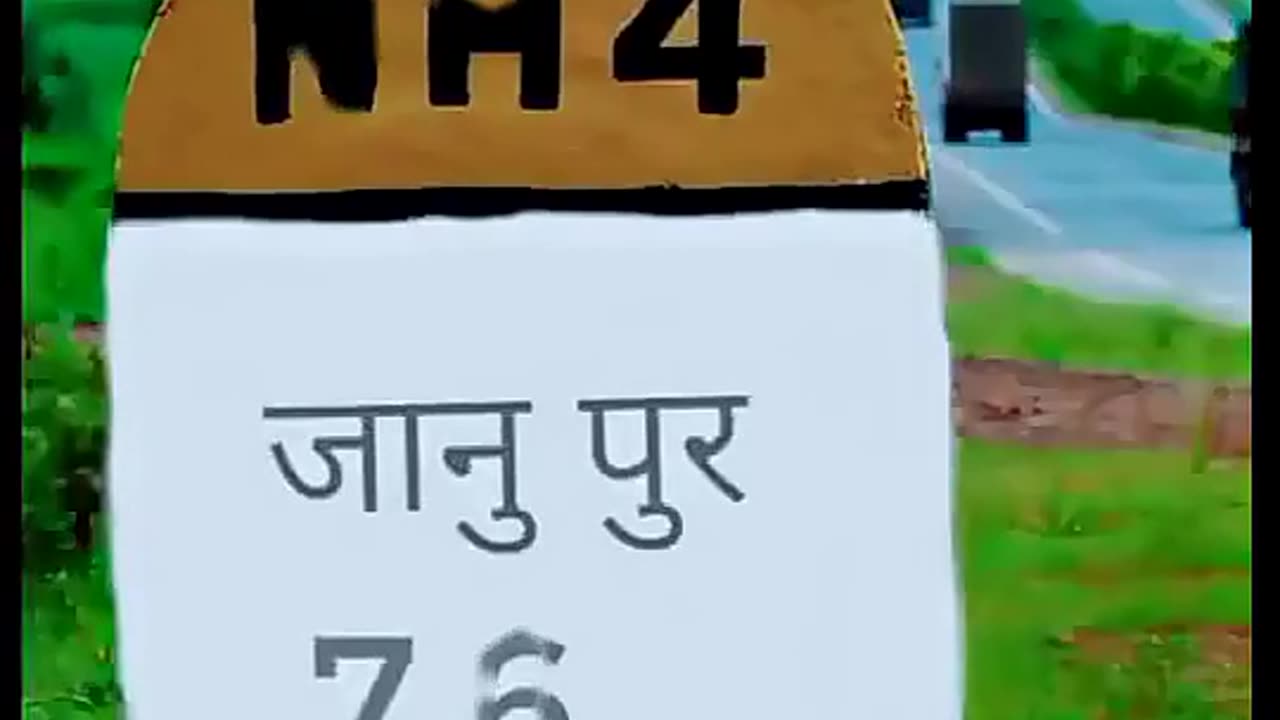 NH4
जानु पुर
76